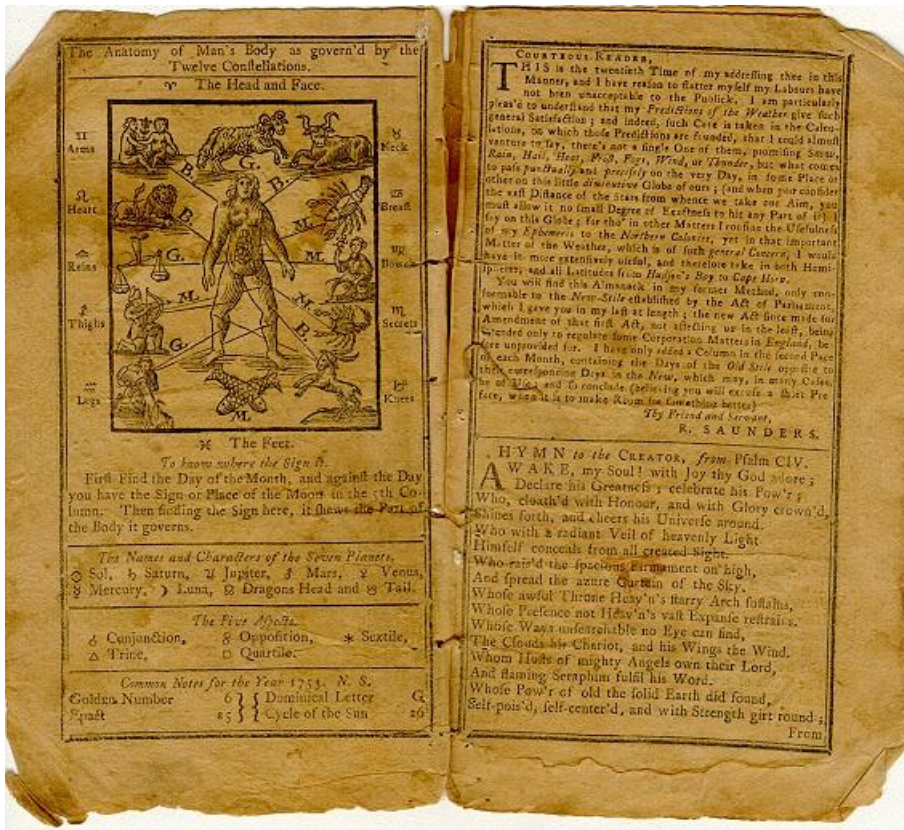 The Anatomy of Man's Body as govern'd by the
Twelve Conſtellations.
♈ The Head and Face.
♊
Arms
♉
Neck
♌
Heart
♋
Breaſt
♎
Reins
♍
Bowels
♐
Thighs
♏
Secrets
♒
Legs
♑
Knees
B.
G.
B.
B.
M.
G.
M.
M.
M.
G.
B.
M.
♓ The Feet.
To know where the Sign is.
Firſt Find the Day of the Month, and againſt the Day
you have the Sign or Place of the Moon in the 5th Co-
lumn. Then finding the Sign here, it ſhews the Part of
the Body it governs.
The Names and Characters of the Seven Planets.
☉ Sol, ♄ Saturn, ♃ Jupiter, ♂ Mars, ♀ Venus,
☿ Mercury, ☽ Luna, ☊ Dragons Head and ☋ Tail.
The Five Aſpects.
☌ Conjunction, ☍ Oppoſition, ⚹ Sextile,
△ Trine, □ Quartile.
Common Notes for the Year 1753. N. S.
Golden Number 6 } { Dominical Letter G
Epact 25 } { Cycle of the Sun 26
COURTEOUS READER,
THIS is the twentieth Time of my addreſſing thee in this
Manner, and I have reaſon to flatter myſelf my Labours have
not been unacceptable to the Publick. I am particularly
pleas'd to underſtand that my Predictions of the Weather give ſuch
general Satisfaction; and indeed, ſuch Care is taken in the Calcu-
lations, on which thoſe Predictions are founded, that I could almoſt
venture to ſay, there's not a ſingle One of them, promiſing Snow,
Rain, Hail, Heat, Froſt, Fogs, Wind, or Thunder, but what comes
to paſs punctually and preciſely on the very Day, in ſome Place or
other on this little diminutive Globe of ours; (and when you conſider
the vaſt Diſtance of the Stars from whence we take our Aim, you
muſt allow it no ſmall Degree of Exactneſs to hit any Part of it) I
ſay on this Globe; for tho' in other Matters I confine the Uſefulneſs
of my Ephemeris to the Northern Colonies, yet in that important
Matter of the Weather, which is of ſuch general Concern, I would
have it more extenſively uſeful, and therefore take in both Hemi-
ſpheres, and all Latitudes from Hudſon's Bay to Cape Horn.
You will find this Almanack in my former Method, only con-
formable to the New-Stile eſtabliſhed by the Act of Parliament,
which I gave you in my laſt at length; the new Act ſince made for
Amendment of that firſt Act, not affecting us in the leaſt, being
intended only to regulate ſome Corporation Matters in England, be-
fore unprovided for. I have only added a Column in the ſecond Page
of each Month, containing the Days of the Old Stile oppoſite to
their correſponding Days in the New, which may, in many Caſes,
be of Uſe; and ſo conclude (believing you will excuſe a ſhort Pre-
face, when it is to make Room for ſomething better)
Thy Friend and Servant,
R. SAUNDERS.
A HYMN to the CREATOR, from Pſalm CIV.
AWAKE, my Soul! with Joy thy God adore;
Declare his Greatneſs; celebrate his Pow'r;
Who, cloath'd with Honour, and with Glory crown'd,
Shines forth, and cheers his Univerſe around.
Who with a radiant Veil of heavenly Light
Himſelf conceals from all created Sight.
Who rais'd the ſpacious Firmament on high,
And ſpread the azure Curtain of the Sky.
Whoſe awful Throne Heav'n's ſtarry Arch ſuſtains,
Whoſe Preſence not Heav'n's vaſt Expanſe reſtrains.
Whoſe Ways unſearchable no Eye can find,
The Clouds his Chariot, and his Wings the Wind.
Whom Hoſts of mighty Angels own their Lord,
And flaming Seraphim fulfil his Word.
Whoſe Pow'r of old the ſolid Earth did found,
Self-pois'd, ſelf-center'd, and with Strength girt round;
From